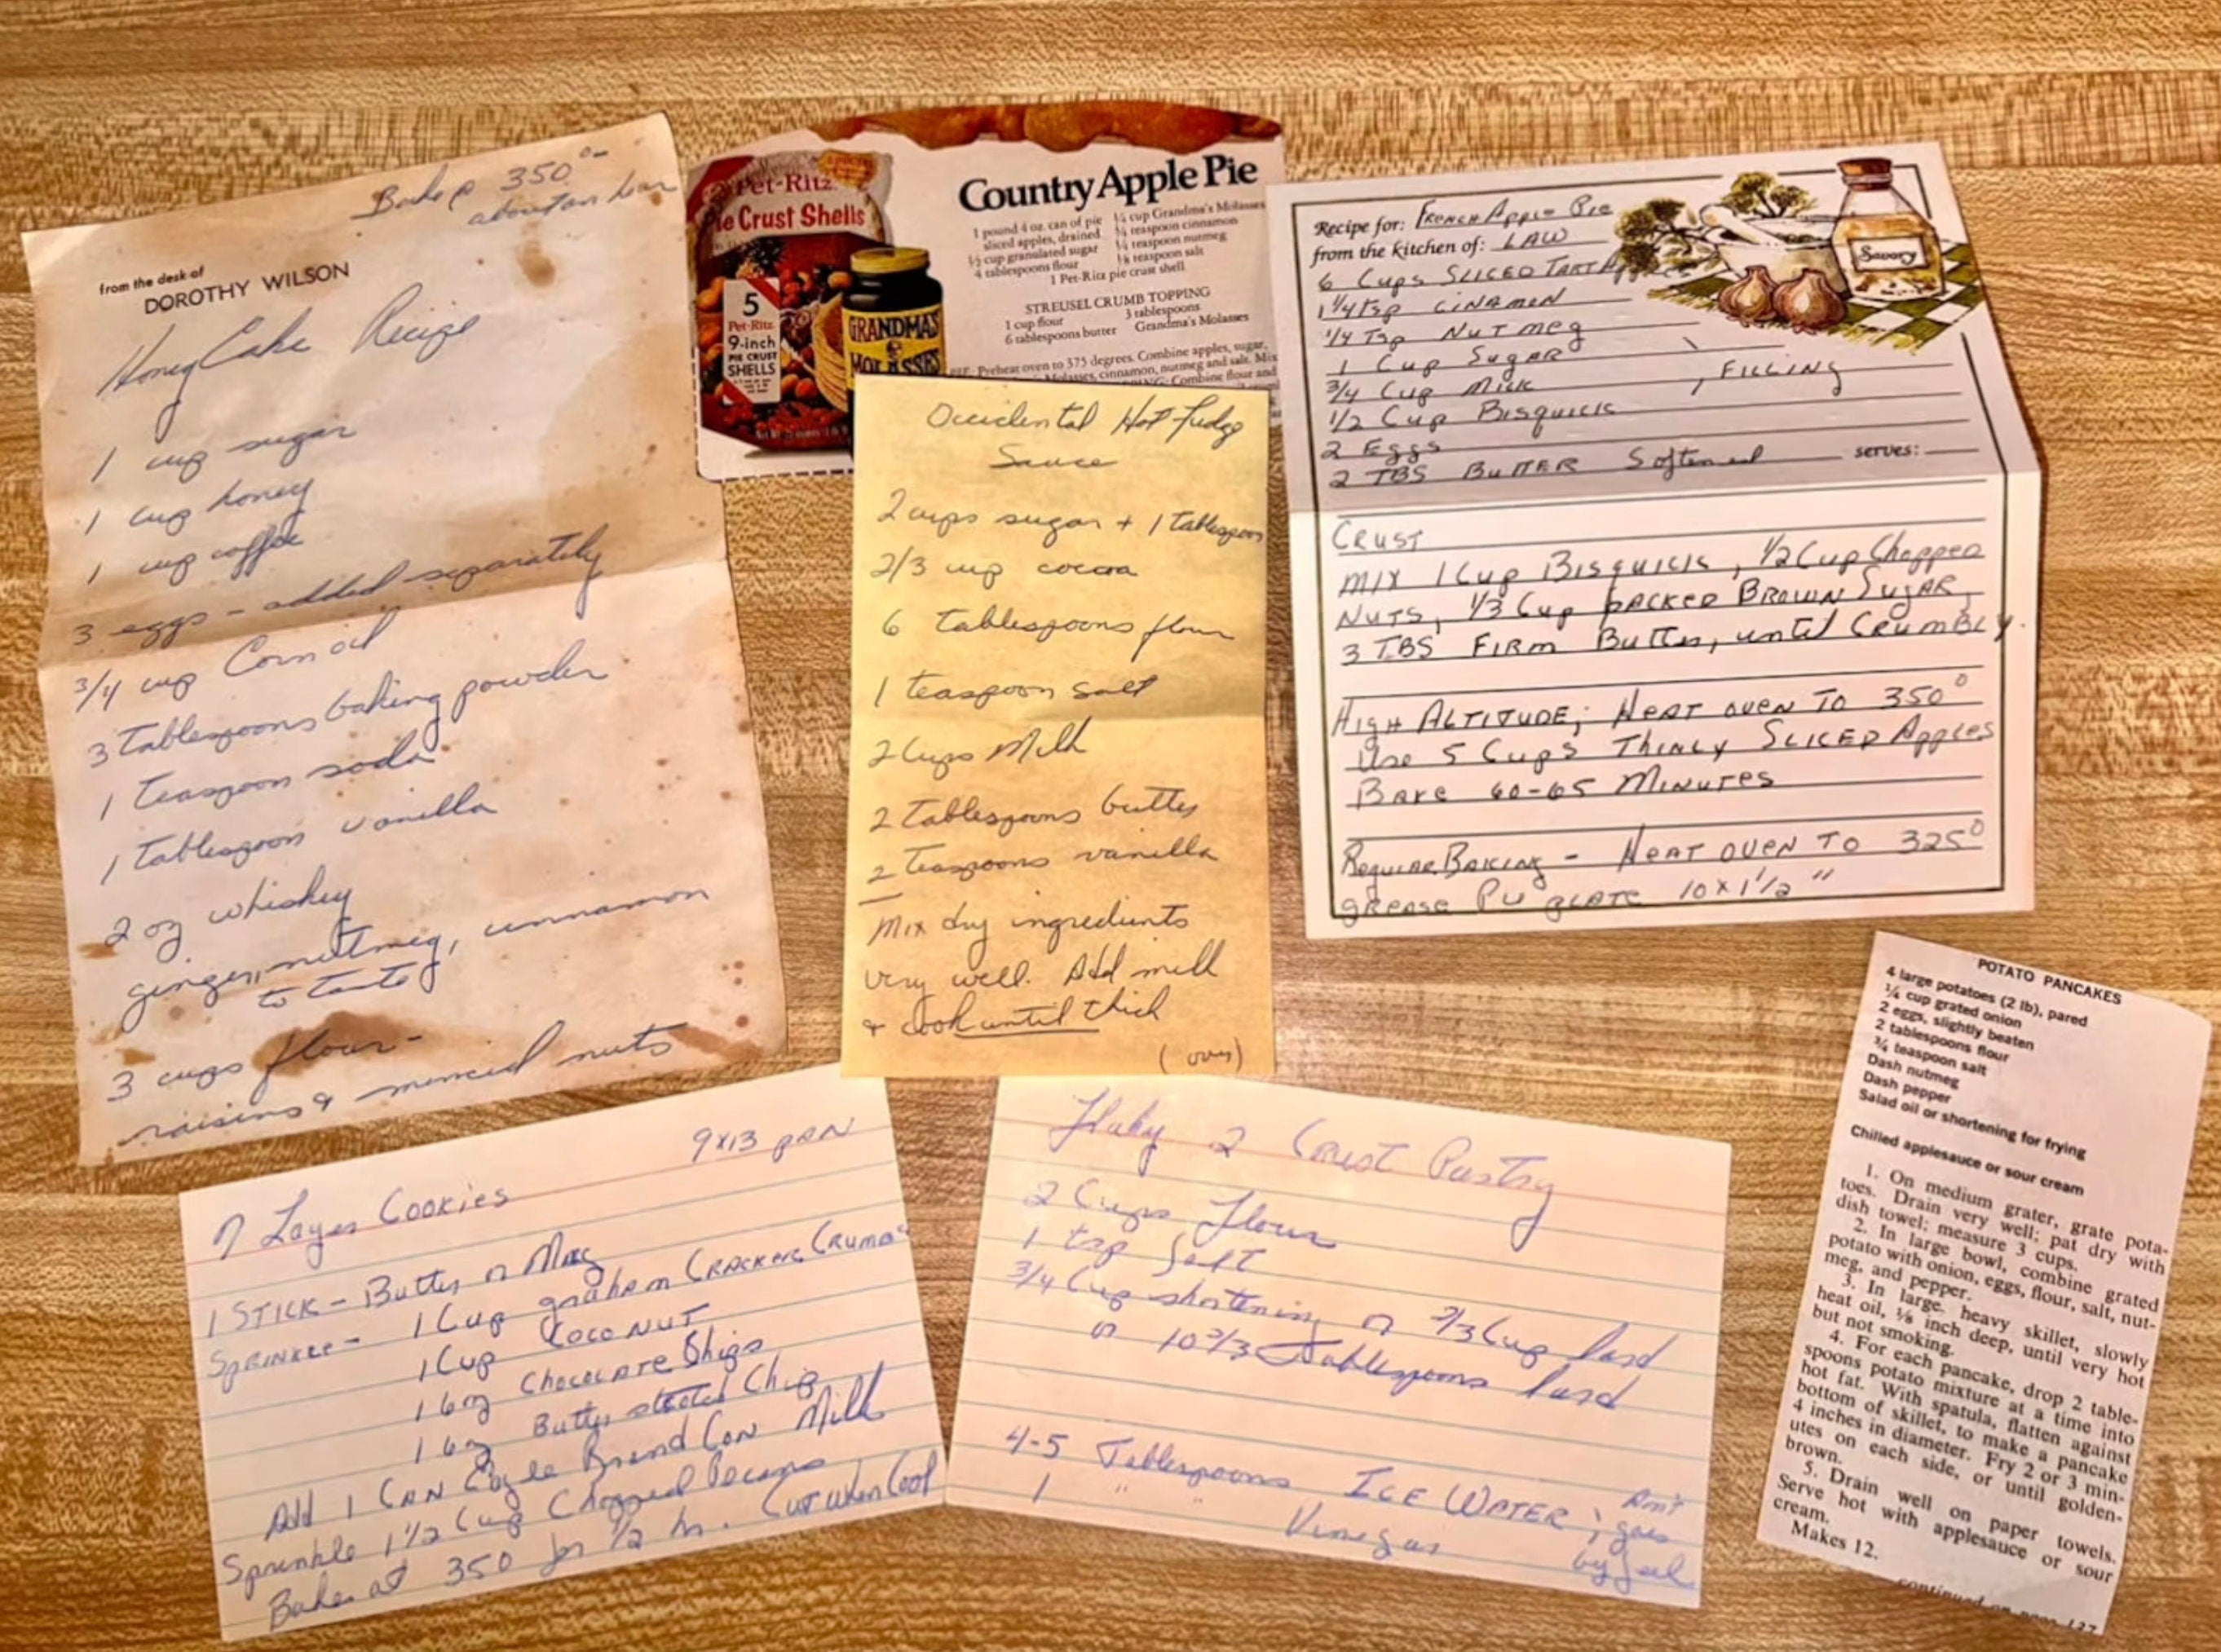 Bake @ 350°-
about an hour
from the desk of
DOROTHY WILSON
Honey Cake Recipe
1 cup sugar
1 cup honey
1 cup coffee
3 eggs - added separately
3/4 cup Corn oil
3 Tablespoons baking powder
1 Teaspoon soda
1 Tablespoon vanilla
2 oz whiskey
ginger, nutmeg, cinnamon
to taste
3 cups flour -
raisins & minced nuts
Pet-Ritz
Pie Crust Shells
5
Pet-Ritz
9-inch
PIE CRUST
SHELLS
GRANDMA'S
MOLASSES
Country Apple Pie
1 pound 4 oz. can of pie
sliced apples, drained
1/2 cup granulated sugar
4 tablespoons flour
1/4 cup Grandma's Molasses
1/4 teaspoon cinnamon
1/4 teaspoon nutmeg
1/8 teaspoon salt
1 Pet-Ritz pie crust shell
STREUSEL CRUMB TOPPING
1 cup flour
6 tablespoons butter
3 tablespoons
Grandma's Molasses
Preheat oven to 375 degrees. Combine apples, sugar,
Molasses, cinnamon, nutmeg and salt. Mix
Combine flour and
Occidental Hot Fudge
Sauce
2 cups sugar + 1 Tablespoon
2/3 cup cocoa
6 Tablespoons flour
1 teaspoon salt
2 Cups Milk
2 Tablespoons butter
2 Teaspoons vanilla
Mix dry ingredients
very well. Add milk
& cook until thick
(over)
Recipe for: FRENCH Apple Pie
from the kitchen of: LAW
6 Cups SLICED TART
1 1/4 Tsp CINAMON
1/4 Tsp NUTMEG
1 Cup SUGAR
3/4 Cup MILK , FILLING
1/2 Cup BISQUICK
2 Eggs
2 TBS BUTTER Softened serves:
Savory
CRUST
MIX 1 Cup BISQUICK, 1/2 Cup Chopped
NUTS, 1/3 Cup PACKED BROWN SUGAR,
3 TBS FIRM Butter, until CRUMBLY.
HIGH ALTITUDE; HEAT OVEN TO 350°
Use 5 Cups THINLY SLICED Apples
BAKE 60-65 MINUTES
REGULAR BAKING - HEAT OVEN TO 325°
grease PIE PLATE 10 x 1 1/2"
9x13 PAN
7 Layer Cookies
1 STICK - Butter or Marg
SPRINKLE - 1 Cup graham CRACKERS CRUMBS
1 Cup COCONUT
1 6 oz CHOCOLATE Chips
1 6 oz Butter scotch Chips
Add 1 CAN Eagle Brand CON Milk
Sprinkle 1 1/2 Cup Chopped Pecans
Bake at 350 for 1/2 hr. CUT WHEN Cool
Flaky 2 Crust Pastry
2 Cups Flour
1 tsp Salt
3/4 Cup shortening or 2/3 Cup lard
or 10 2/3 Tablespoons lard
4-5 Tablespoons ICE WATER; Don't
1 " " Vinegar goes
by feel
POTATO PANCAKES
4 large potatoes (2 lb), pared
1/4 cup grated onion
2 eggs, slightly beaten
2 tablespoons flour
3/4 teaspoon salt
Dash nutmeg
Dash pepper
Salad oil or shortening for frying
Chilled applesauce or sour cream
1. On medium grater, grate pota-
toes. Drain very well; pat dry with
dish towel; measure 3 cups.
2. In large bowl, combine grated
potato with onion, eggs, flour, salt, nut-
meg, and pepper.
3. In large, heavy skillet, slowly
heat oil, 1/8 inch deep, until very hot
but not smoking.
4. For each pancake, drop 2 table-
spoons potato mixture at a time into
hot fat. With spatula, flatten against
bottom of skillet, to make a pancake
4 inches in diameter. Fry 2 or 3 min-
utes on each side, or until golden-
brown.
5. Drain well on paper towels.
Serve hot with applesauce or sour
cream.
Makes 12.
continued on page 137